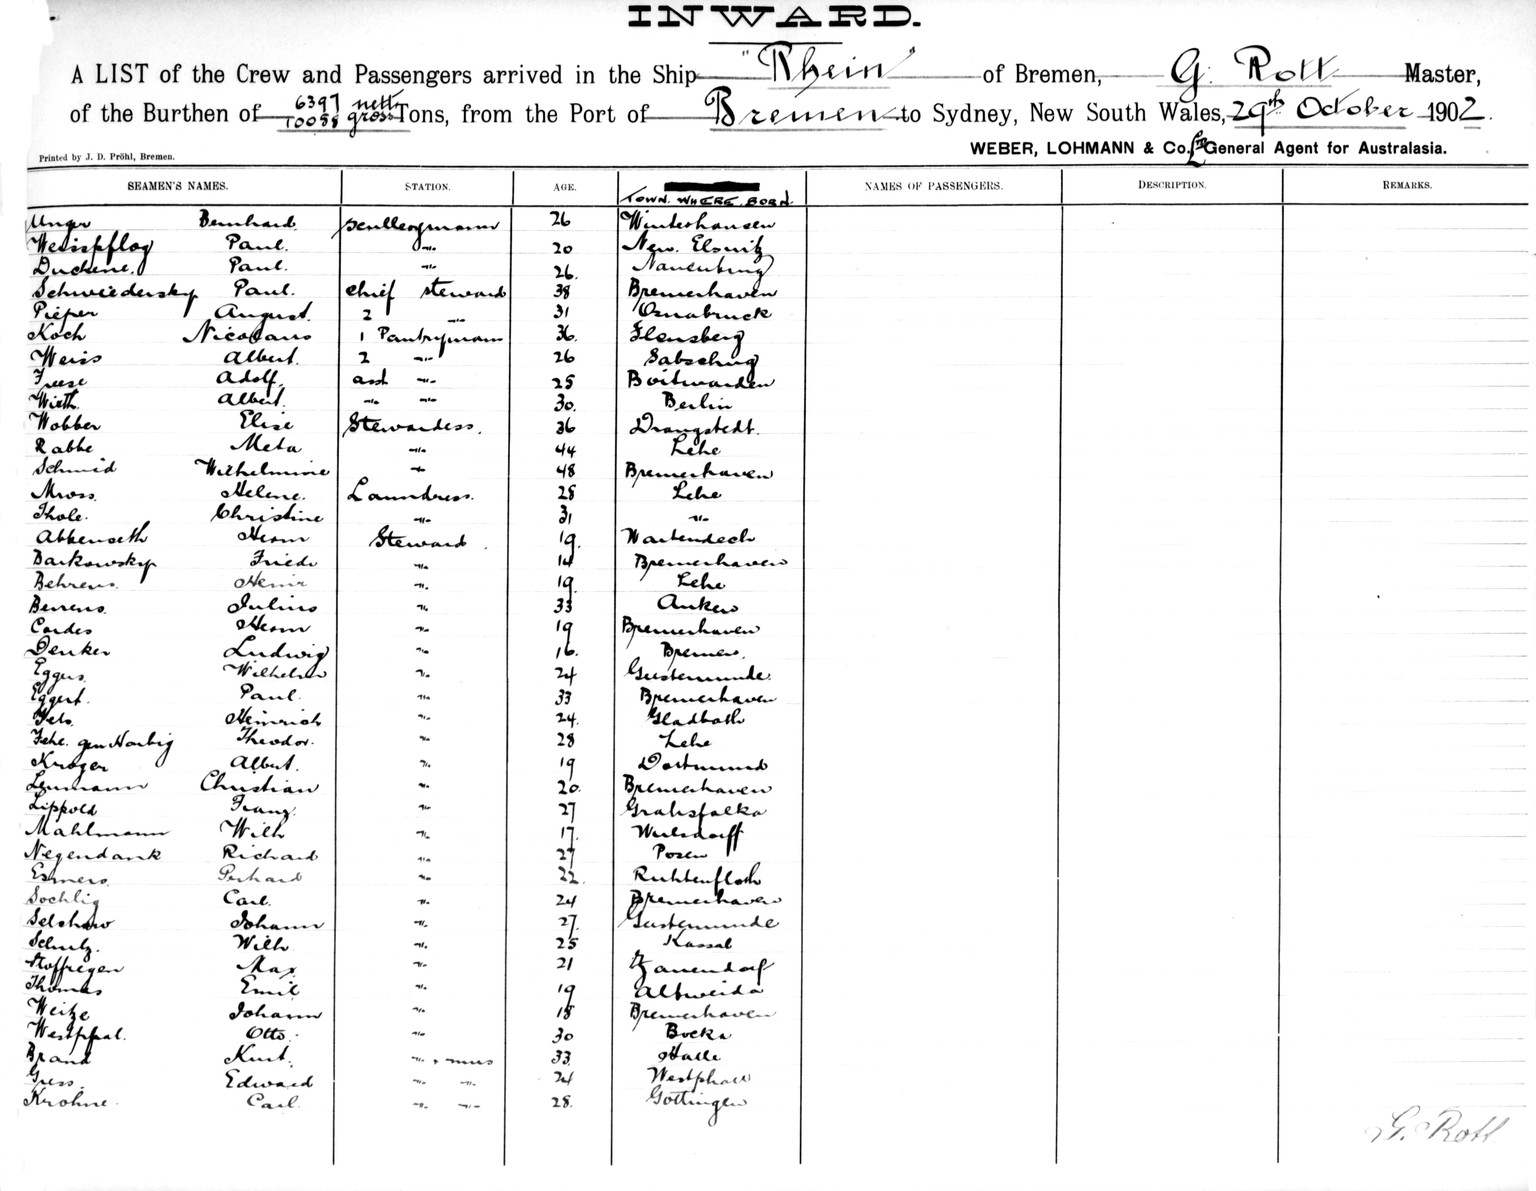 INWARD.
A LIST of the Crew and Passengers arrived in the Ship "Rhein" of Bremen, G. Rott Master,
of the Burthen of 6397 nett 10058 gross Tons, from the Port of Bremen to Sydney, New South Wales, 29th October 1902.
WEBER, LOHMANN & Co. Ltd General Agent for Australasia.
Printed by J. D. Pröhl, Bremen.
SEAMEN'S NAMES. STATION. AGE. TOWN WHERE BORN. NAMES OF PASSENGERS. DESCRIPTION. REMARKS.
Unger Bernhard 26 Winterhausen
Weisspflog Paul. -"- 20 New. Elsnitz
Duchene. Paul. -"- 26. Nauenburg
Schwiedersky Paul. chief steward 38 Bremerhaven
Pieper August. 2 -"- 31 Osnabruck
Koch Nicolaus 1 Pantrymann 36. Flensberg
Weiss Albert. 2 -"- 26
Freese Adolf. asst -"- 25 Boitwarden
Wirth. Albert. -"- -"- 30. Berlin
Wobber Elise Stewardess. 36 Drangstedt.
Rabbe Meta -"- 44 Lehe
Schmid Wilhelmine -"- 48 Bremerhaven
Mross. Helene. Laundress. 28 Lehe
Thole. Christine -"- 31 -"-
Abbenseth Herm Steward. 19. Warbendech
Barkowsky Friedr -"- 14 Bremerhaven
Behrens. Heinr -"- 19. Lehe
Berrens. Julius -"- 33 Anken
Cordes Herm -"- 19 Bremerhaven
Denker Ludwig -"- 16. Bremen.
Eggers. Wilhelm -"- 24 Geestemunde.
Eggert. Paul. -"- 33 Bremerhaven
Fels. Heinrich -"- 24. Gladbach
Fehr. gen Harbig Theodor. -"- 28 Lehe
Kroger Albert. -"- 19 Dortmund
Leumann Christian -"- 20. Bremerhaven
Lippold Franz. -"- 27 Grabsfalka
Mahlmann Wilh -"- 17. Wulsdorff
Negendank Richard -"- 27 Posen
Esmers. Gerhard -"- 22.
Sochlig Carl. -"- 24 Bremerhaven
Selchow Johann -"- 27. Geestemunde
Schulz. Wilh -"- 25 Kassel
Stoffregen Max -"- 21 Zauendorf
Thomas Emil -"- 19 Altweida
Weitze Johann -"- 18 Bremerhaven
Westphal. Otto. -"- 30 Bocka
Brand Kurt. -"- . mus 33. Halle
Gress. Edward -"- -"- 24 Westphal
Krohne. Carl. -"- -"- 28. Gottingen
G. Rott